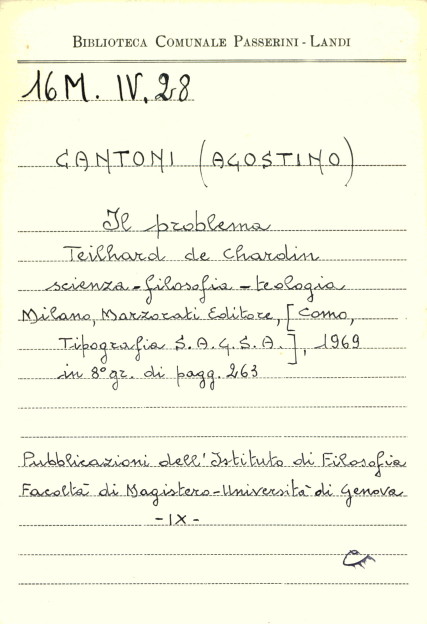 BIBLIOTECA COMUNALE PASSERINI - LANDI
16 M. IV. 28
CANTONI (AGOSTINO)
Il problema
Teilhard de Chardin
scienza - filosofia - teologia
Milano, Marzorati Editore, [Como,
Tipografia S.A.G.S.A.], 1969
in 8° gr. di pagg. 263
Pubblicazioni dell'Istituto di Filosofia
Facoltà di Magistero - Università di Genova
- IX -